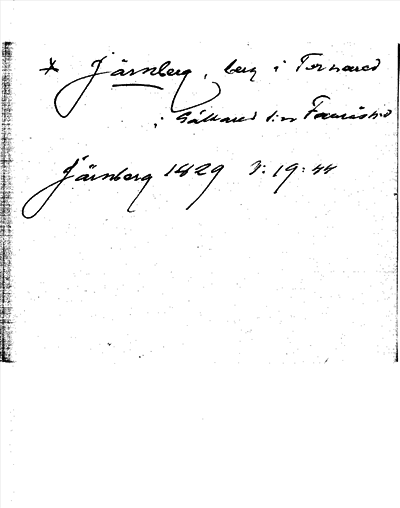 * Järnberg, berg i Tornared
i Gällared s:n Faurås hd
Järnberg 1829 V:19:44